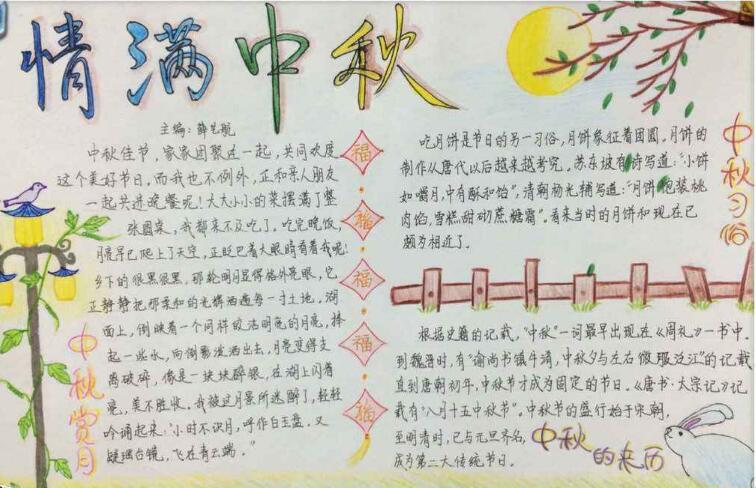 情满中秋
主编：薛艺航
中秋佳节，家家团聚在一起，共同欢度
这个美好节日。而我也不例外，正和亲人朋友
一起共进晚餐呢！大大小小的菜摆满了整
张圆桌，我都来不及吃了。吃完晚饭，
月亮早已爬上了天空，正眨巴着大眼睛看着我呢！
乡下的很黑很黑，那轮明月显得格外亮眼，它
正静静把那柔和的光撒洒遍每一寸土地。湖
面上，倒映着一个同样皎洁明亮的月亮，捧
起一些水，向倒影泼洒出去，月亮变得支
离破碎，像是一块块碎银，在湖上闪着
亮，美不胜收。我被这月景所迷醉了，轻轻
吟诵起来：“小时不识月，呼作白玉盘。又
疑瑶台镜，飞在青云端。”
中秋赏月
福
福
福
福
福
吃月饼是节日的另一习俗，月饼象征着团圆。月饼的
制作从唐代以后越来越考究。苏东坡有诗写道：“小饼
如嚼月，中有酥和饴”，清朝杨光辅写道：“月饼包装桃
肉馅，雪糕甜砌蔗糖霜”。看来当时的月饼和现在已
颇为相近了。
中秋习俗
根据史籍的记载，“中秋”一词最早出现在《周礼》一书中。
到魏晋时，有“谕尚书镇牛渚，中秋夕与左右微服泛江”的记载
直到唐朝初年，中秋节才成为固定的节日。《唐书·太宗记》记
载有“八月十五中秋节”。中秋节的盛行始于宋朝，
至明清时，已与元旦齐名，
成为第二大传统节日。
中秋的来历